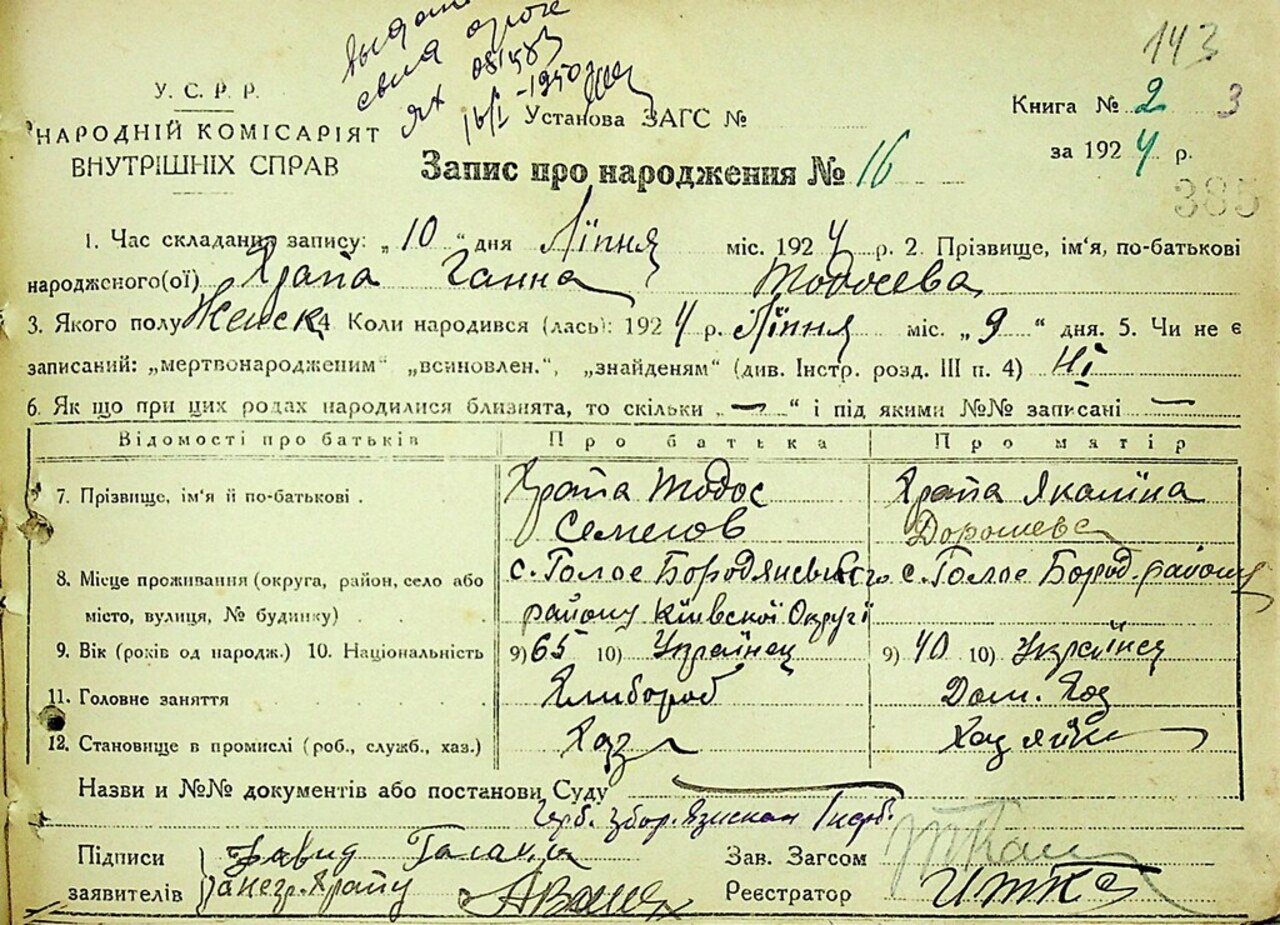 143
У. С. Р. Р.
НАРОДНІЙ КОМІСАРІЯТ
ВНУТРІШНІХ СПРАВ
ях 081583
16/I -1950
Установа ЗАГС №
Книга № 2 3
за 1924 р.
Запис про народження № 16
385
1. Час складання запису: „10“ дня Ліпня міс. 1924 р. 2. Прізвище, ім'я, по-батькові
народженого(ої) Храпа Ганна Тодосева
3. Якого полу Женск 4 Коли народився (лась): 1924 р. Ліпня міс. „9“ дня. 5. Чи не є
записаний: „мертвонародженим“ „всиновлен.“, „знайденям“ (див. Інстр. розд. III п. 4) Ні
6. Як що при цих родах народилися близнята, то скільки „—“ і під якими №№ записані —
Відомості про батьків Про батька Про матір
7. Прізвище, ім'я й по-батькові . Храпа Тодос Храпа Якилина
Семенов Дорошева
8. Місце проживання (округа, район, село або с. Голое Бородянського с. Голое Бород. району
місто, вулиця, № будинку) району Київскої Округі
9. Вік (років од народж.) 10. Національність 9) 65 10) Українец 9) 40 10) Українец
11. Головне заняття Хлибороб Дом. Хоз
12. Становище в промислі (роб., служб., хаз.) Хаз Хазяйк
Назви и №№ документів або постанови Суду
Герб. Збор.
Підписи Давид
заявителів
Зав. Загсом
Реєстратор